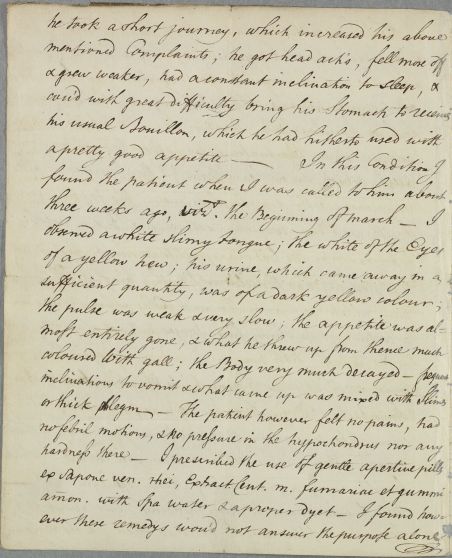 he took a short journey, which increased his above
mentioned Complaints; he got head achs, fell more off
& grew weaker, had a constant inclination to sleep, &
cou'd with great difficulty bring his Stomach to receive
his usual Bouillon, which he had hitherto used with
a pretty good appetite — In this Condition I
found the patient when I was called to him about
three weeks ago, vizt. the Beginning of March — I
observed a white slimy tongue; the white of the Eyes
of a yellow hew; his urine, which came away in a
sufficient quantity, was of a dark yellow colour;
the pulse was weak & very slow; the appetite was al-
most entirely gone, & what he threw up from thence much
coloured with gall; the Body very much decayed —
inclinations to vomit & what came up was mixed with Slime
or thick phlegm — The patient however felt no pains, had
no febril motions, & no pressure in the hypochondrus nor any
hardness there — I prescribed the use of gentle aperitive pills
ex Sapone ven. rhei, Extract Cent. m. fumariae et gummi
amon. with Spa water & a proper dyet — I found how-
ever these remedys would not answer the purpose alone